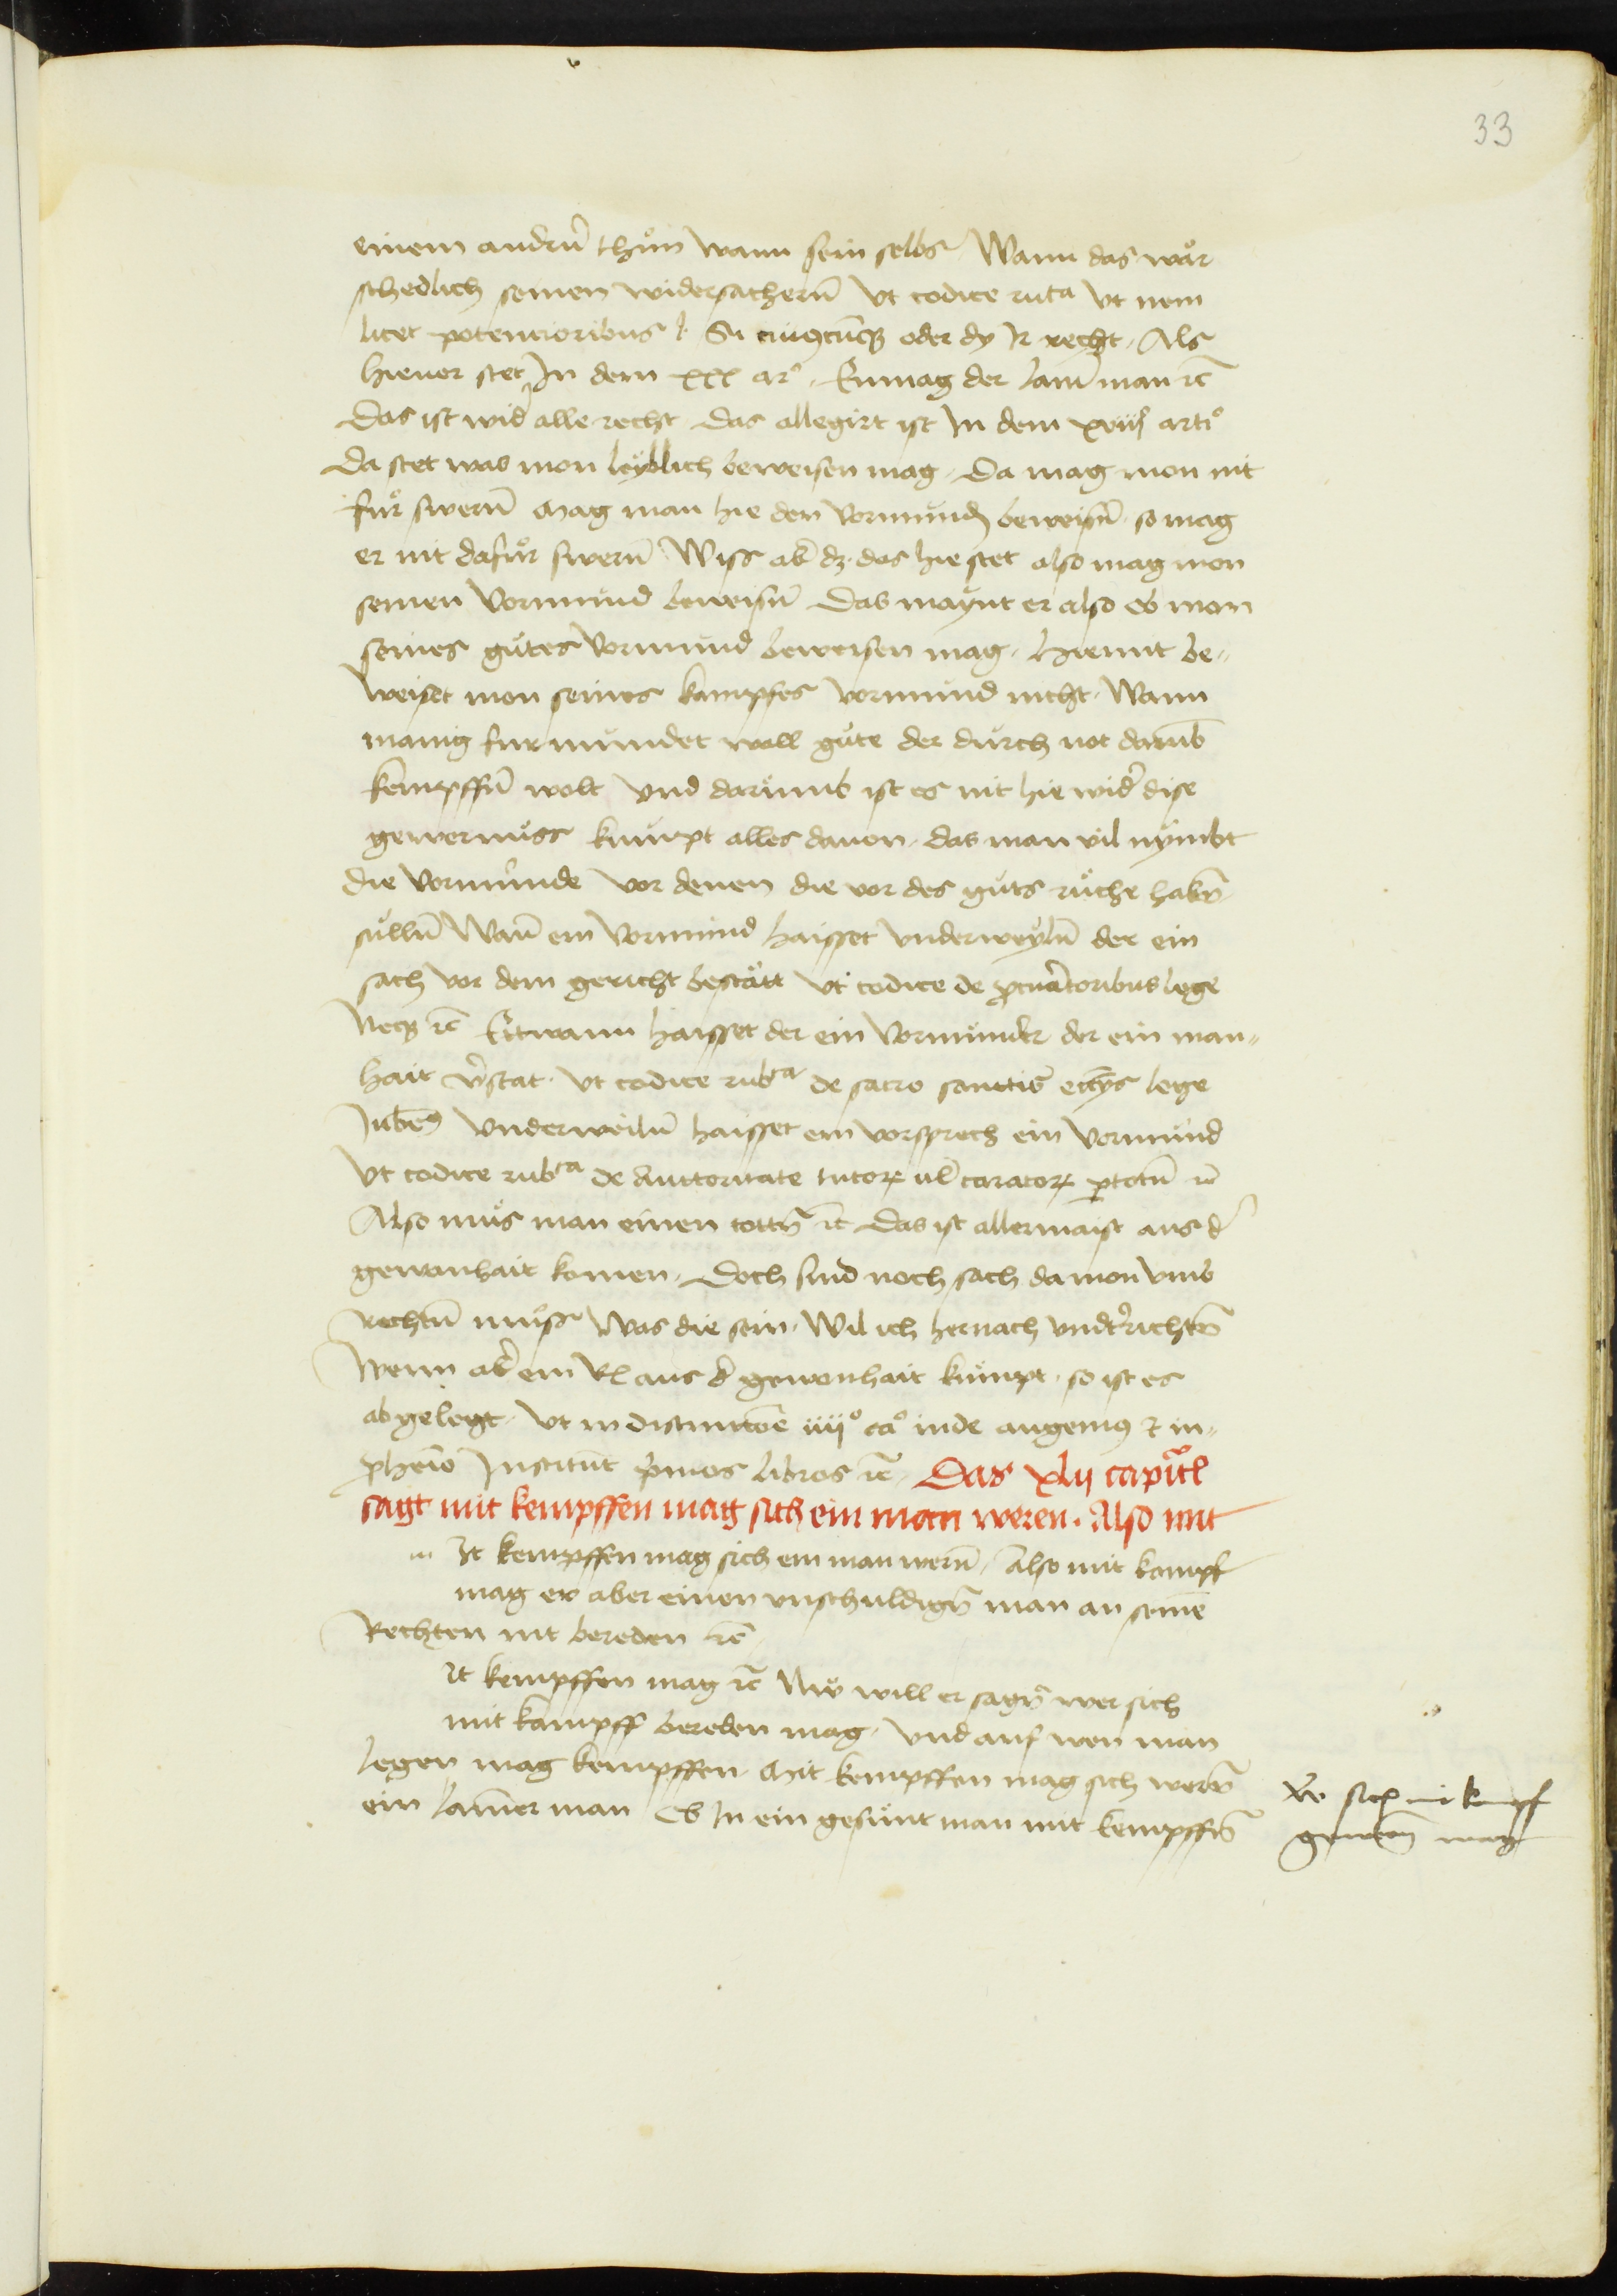 33
einem andrn̄ thůn wann sein selbs Wann das wår
schedlich seinen widersachern̄ vt codice ruta vt nem
licet potencioribus l. Si cuiuscūqꝫ oder dy Jr recht Als
hieuor stet Jn dem xxx arᵒ Enmag der lam̄ man ꝛc̄
Das ist wid̕ alle recht das allegirt ist Jn dem xviij artiᵒ
Da stet was mon leyblich beweisen mag Da mag mon nit
fůr swern̄ Mag man hie den vormund beweisn̄ so mag
er nit dafůr swern̄ Wiss ab̕ dz das hie stet also mag mon
seinen vormund beweisn̄ Das maynt er also eb mon
seines gůtes vormund beweisen mag Hiemit be„
weiset mon seines kampfes vormund nicht Wann
manig furmundet woll gůte der durch not darumb
kempffn̄ wolt vnd darumb ist es nit hie wid̕ dise
gewernuss kumpt alles dauon das man vil nymbt
die vormunde vor denen die vor des gůts růche habn̄
sůlln̄ Wan̄ ein vormund haisset vnderweyln̄ der ein
sach vor dem gericht bestått vt codice de ꝓcuratoribus lege
Neqꝫ ꝛc̄ Ettwann haisset der ein vormunder der ein man„
hait v̕stat vt codice rubᶜᵃ de sacro sanctis ecc̄ijs lege
Jubem̕ vnderweiln̄ haisset ein vorsprech ein vormund
vt codice rubᶜᵃ de auctoritate tutoꝝ ul̕ curatoꝝ ꝑ totū ꝛc̄
Also můs man einen tottn̄ ꝛc̄ das ist allermaist aus d̕
gewonhait komen Doch sind noch sach da mon vmb
rechtn̄ můss Was die sein Wil ich hernach vndt̕richtn̄
Wenn ab̕ ein Rꝉ aus d̕ gewonhait kumpt so ist es
abgelegt vt in distinctōe iiijᵒ caᵒ inde augenius & in„
ꝓhemo Jnstitut primos libros ꝛc̄ Das xlij capitl̄
sagt mit kempffen mag sich ein man weren. Also mit
m Jt kempffen mag sich ein man wern̄ Also mit kampf
mag er aber einen vnschuldign̄ man an seinē
Rechten nit bereden ꝛc̄
It kempffen mag ꝛc̄ Nů will er sagn̄ wer sich
mit kampff bereden mag vnd auf wen man
legen mag kempffen Mit kempffen mag sich wern̄
ein lamer man Eb Jn ein gesunt man mit kempffn̄
gewern̄ mag